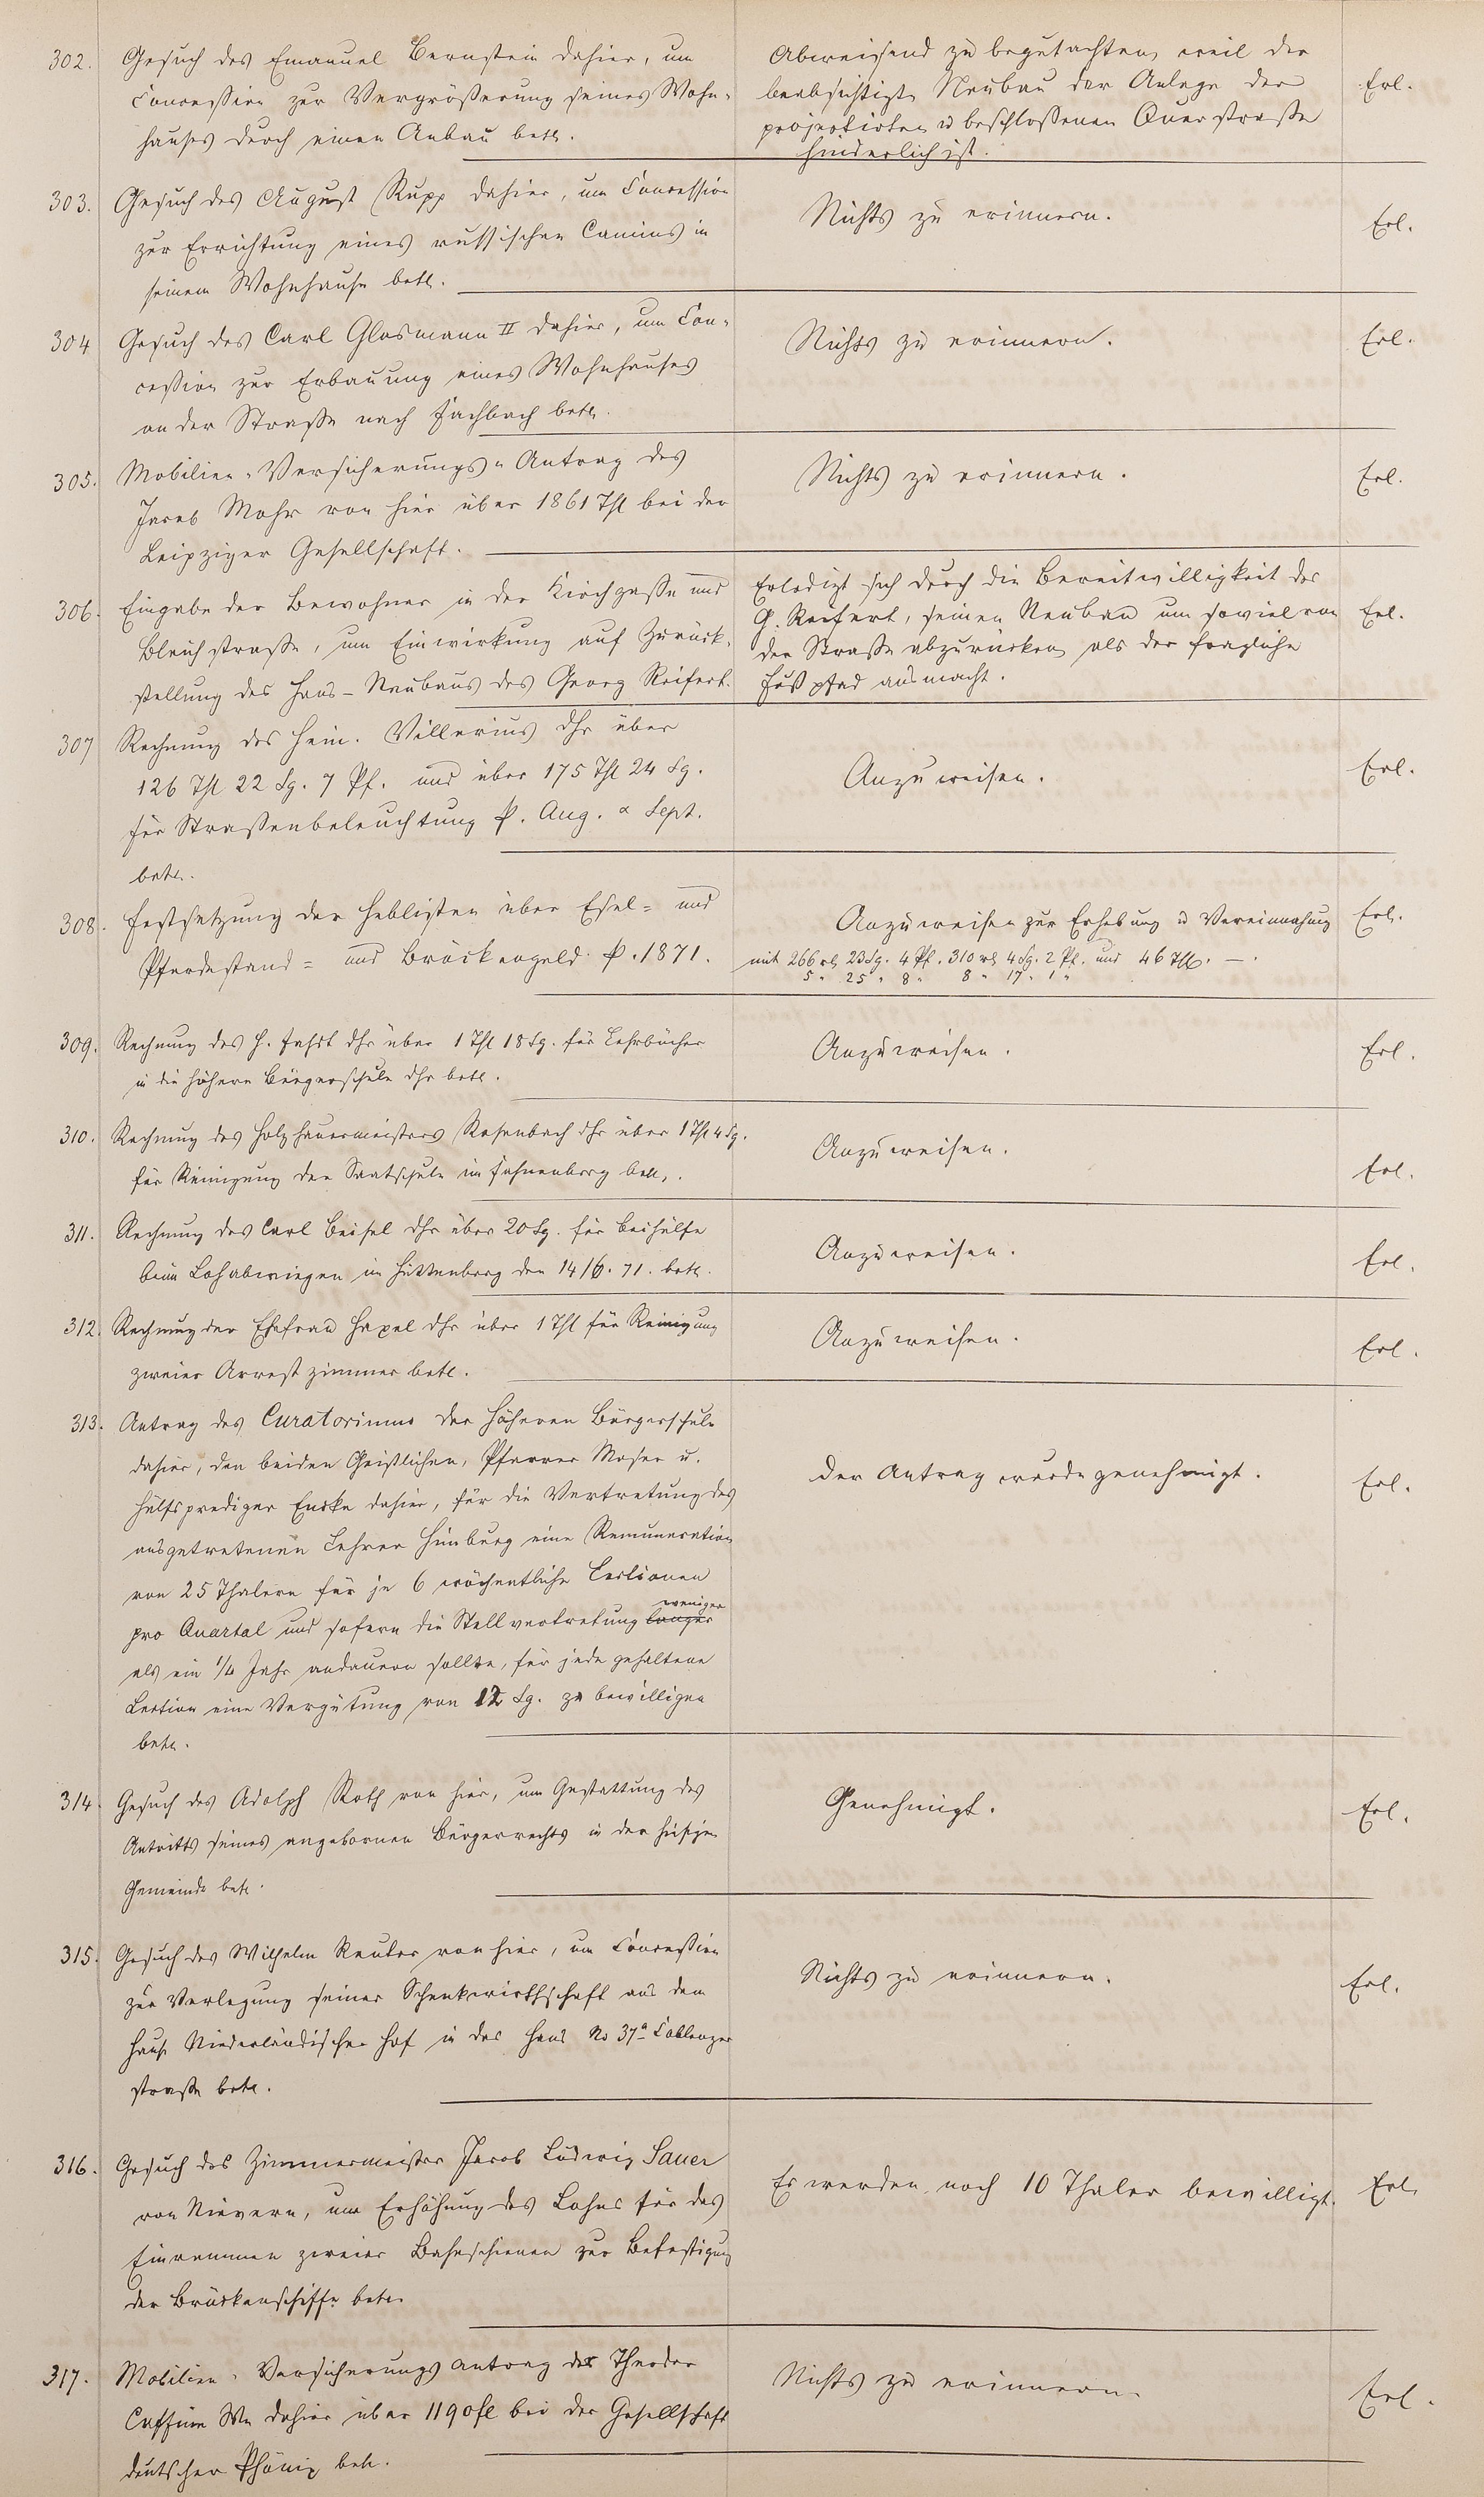 302. Gesuch des Emanuel Bernstein dahier, um
Concession zur Vergrößerung seines Wohn-
hauses durch einen Anbau betr.
Abweisend zu begutachten, weil der
beabsichtigte Neubau der Anlage der
projectirten u beschlossenen Querstraße
hinderlich ist.
Erl.
303. Gesuch des August Rupp dahier, um Concession
zur Errichtung eines russischen Camins in
seinem Wohnhause betr.
Nichts zu erinnern.
Erl.
304 Gesuch des Carl Glasmann II dahier, um Con-
cession zur Erbauung eines Wohnhauses
an der Straße nach Fachbach betr.
Nichts zu erinnern.
Erl.
305. Mobilien-Versicherungs-Antrag des
Jacob Mohr von hier über 1861 Thl bei der
Leipziger Gesellschaft.
Nichts zu erinnern.
Erl.
306. Eingabe der Bewohner in der Kirchgasse und
Bleichstraße, um Einwirkung auf Zurück-
stellung des Haus-Neubaus des Georg Reifert.
Erledigt sich durch die Bereitwilligkeit des
G. Reifert, seinen Neubau um soviel von
der Straße abzurücken, als der fragliche
Fußpfad ausmacht.
Erl.
307 Rechnung des Hein. Villerius dhr über
126 Thl 22 Sg. 7 Pf. und über 175 Thl 24 Sg.
für Straßenbeleuchtung p. Aug. & Sept.
betr.
Anzuweisen.
Erl.
308. Festsetzung der Heblisten über Esel- und
Pferdestand- und Brückengeld p. 1871.
Anzuweisen zur Erhebung u Vereinnahmung
mit 266 rh 23 Sg. 4 Pf. 310 rh 4 Sg. 2 Pf. und 46 Thlr. —.
5 " 25 " 8 " 8 " 17 " 1 "
Erl.
309. Rechnung des H. Fahdt dhr über 1 Thl 18 Sg. für Lehrbücher
in die höhere Bürgerschule dhr betr.
Anzuweisen.
Erl.
310. Rechnung des Holzhauermeisters Rosenbach dhr über 1 Thl 4 Sg.
für Reinigung der Saatschule im Fahnenberg betr.
Anzuweisen.
Erl.
311. Rechnung des Carl Beisel dhr über 20 Sg. für Beihülfe
beim Lohabwiegen im Hüttenberg den 14/6. 71. betr.
Anzuweisen.
Erl.
312. Rechnung der Ehefrau Hepel dhr über 1 Thl für Reinigung
zweier Arrestzimmer betr.
Anzuweisen.
Erl.
313. Antrag des Curatoriums der höheren Bürgerschule
dahier, den beiden Geistlichen, Pfarrer Moser u.
Hülfsprediger Encke dahier, für die Vertretung des
ausgetretenen Lehrer Himburg eine Remuneration
von 25 Thalern für je 6 wöchentliche Lectionen
pro Quartal und sofern die Stellvertretung länger weniger
als ein 1/4 Jahr andauern sollte, für jede gehaltene
Lection eine Vergütung von 12 Sg. zu bewilligen
betr.
Der Antrag wurde genehmigt.
Erl.
314. Gesuch des Adolph Roth von hier, um Gestattung des
Antritts seines angebornen Bürgerrechts in der hiesigen
Gemeinde betr.
Genehmigt.
Erl.
315. Gesuch des Wilhelm Reuter von hier, um Concession
zur Verlegung seiner Schenkwirthschaft aus dem
Hause Niederländischer Hof in das Haus No 37a Coblenzer
straße betr.
Nichts zu erinnern.
Erl.
316. Gesuch des Zimmermeister Jacob Ludwig Sauer
von Nievern, um Erhöhung des Lohns für das
Einrammen zweier Bahnschienen zur Befestigung
der Brückenschiffe betr.
Es werden noch 10 Thaler bewilligt.
Erl.
317. Mobilien-Versicherungsantrag der Theodor
We dahier über 1190 fl bei der Gesellschaft
deutscher Phönix betr.
Nichts zu erinnern.
Erl.